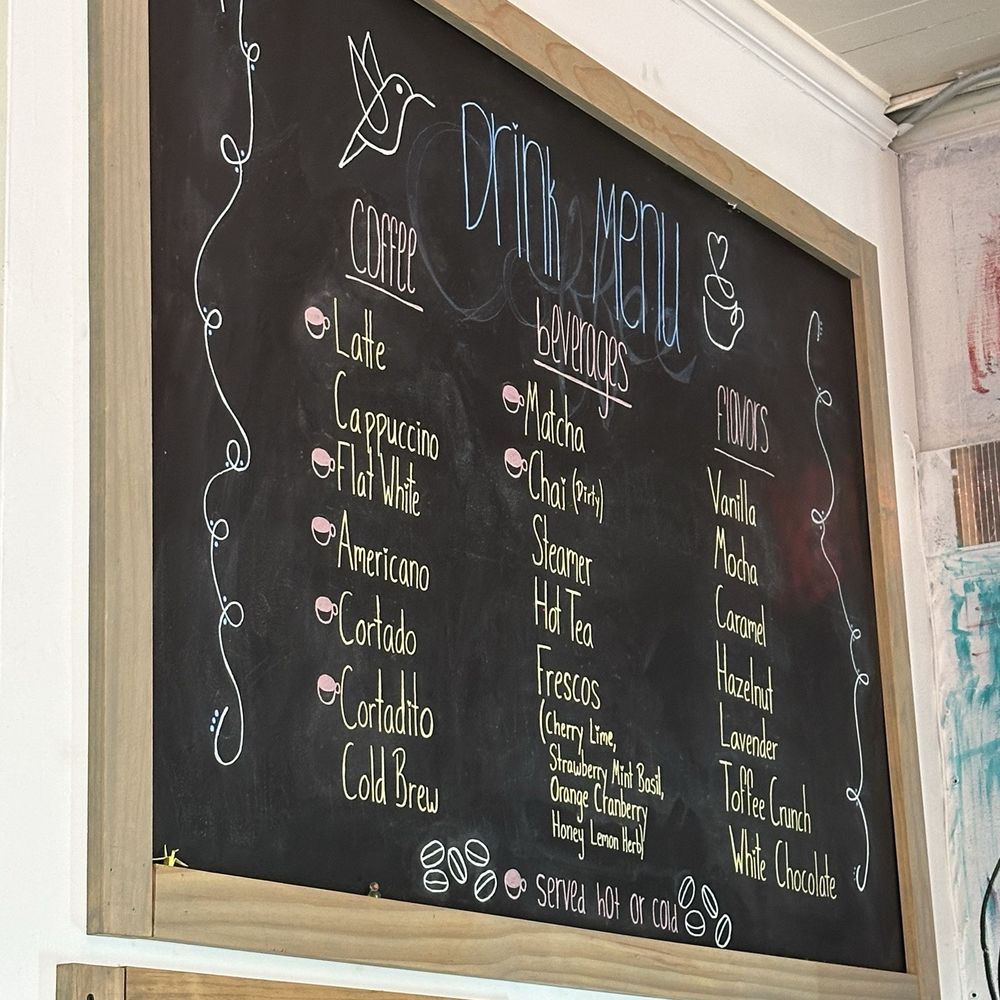 Drink Menu
Coffee
Latte
Cappuccino
Flat White
Americano
Cortado
Cortadito
Cold Brew
beverages
Matcha
Chai (Dirty)
Steamer
Hot Tea
Frescos
(Cherry Lime,
Strawberry Mint Basil,
Orange Cranberry
Honey Lemon Herb)
Flavors
Vanilla
Mocha
Caramel
Hazelnut
Lavender
Toffee Crunch
White Chocolate
served hot or cold